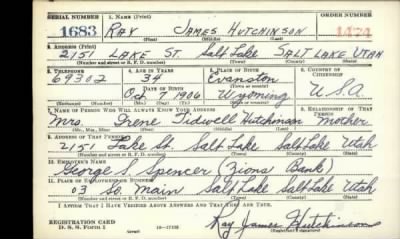 SERIAL NUMBER 1. NAME (Print) ORDER NUMBER
1683 RAY JAMES HUTCHINSON 1474
(First) (Middle) (Last)
2. ADDRESS (Print)
2151 LAKE ST. Salt Lake SALT LAKE UTAH
(Number and street or R. F. D. number) (Town) (County) (State)
3. TELEPHONE 4. AGE IN YEARS 5. PLACE OF BIRTH 6. COUNTRY OF CITIZENSHIP
69302 34 Evanston
DATE OF BIRTH (Town or county)
Oct. 7 1906 Wyoming U.S.A.
(Exchange) (Number) (Mo.) (Day) (Yr.) (State or country)
7. NAME OF PERSON WHO WILL ALWAYS KNOW YOUR ADDRESS 8. RELATIONSHIP OF THAT PERSON
Mrs. Irene Tidwell Hutchinson Mother
(Mr., Mrs., Miss) (First) (Middle) (Last)
9. ADDRESS OF THAT PERSON
2151 Lake St. Salt Lake Salt Lake Utah
(Number and street or R. F. D. number) (Town) (County) (State)
10. EMPLOYER'S NAME
George S. Spencer (Zions Bank)
11. PLACE OF EMPLOYMENT OR BUSINESS
03 So. Main Salt Lake Salt Lake Utah
(Number and street or R. F. D. number) (Town) (County) (State)
I AFFIRM THAT I HAVE VERIFIED ABOVE ANSWERS AND THAT THEY ARE TRUE.
REGISTRATION CARD
D. S. S. Form 1 (over) Ray James Hutchinson